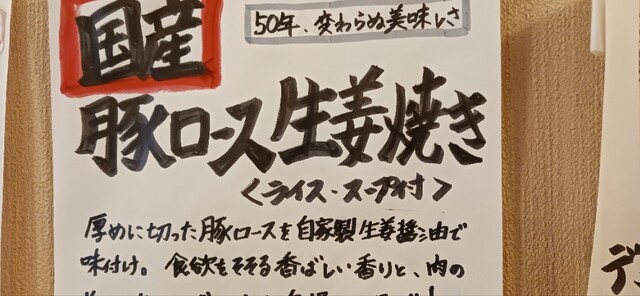 国産
50年、変わらぬ美味しさ
豚ロース生姜焼き
<ライス・スープ付>
厚めに切った豚ロースを自家製生姜醤油で
味付け。食欲をそそる香ばしい香りと、肉の
デ